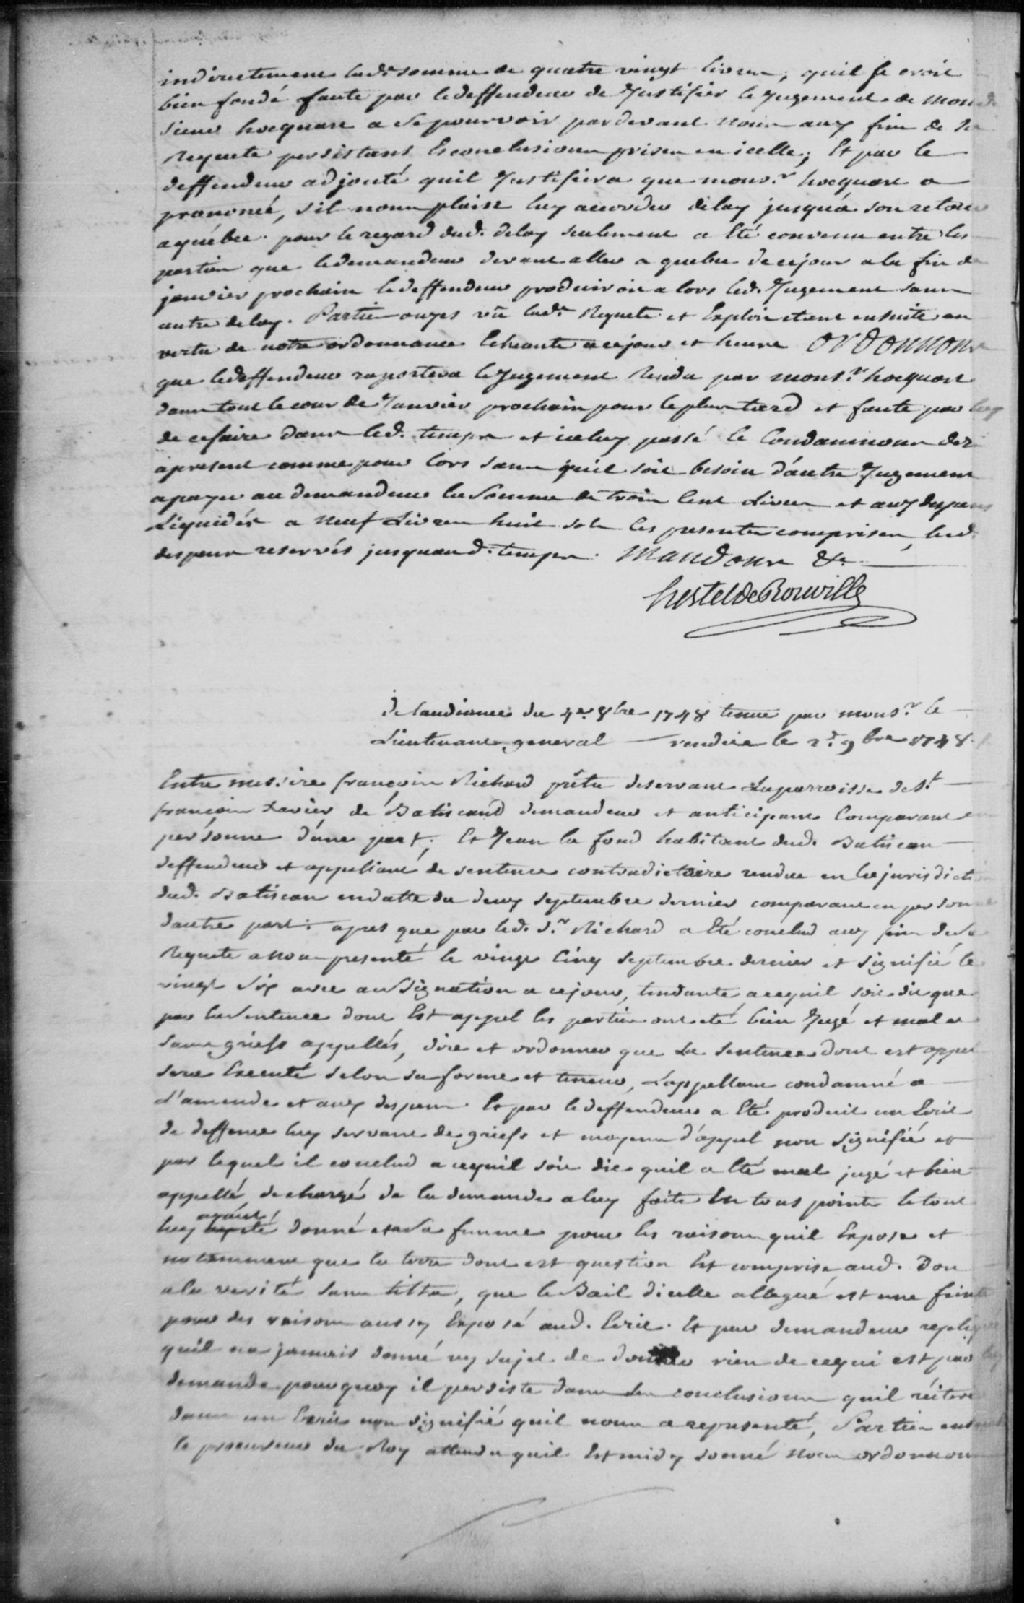 indirectement lad.e somme de quatre vingt livres, quil se croit
bien fondé faute par le deffendeur de Justifier le Jugement de mond.
sieur hocquart a se pourvoir pardevant nous aux fins de sa
Requete persistant Es conclusions prises en icelle; Et par le
deffendeur adjouté quil Justifiera que mons.r hocquart a
prononcé, s'il nous plaist luy accorder delay jusqu'a son retour
a québec. pour le regard dud. delay seulement a Eté convenu entre les
parties que le demandeur devant aller a quebec de ce jour a la fin de
janvier prochain le deffendeur produiroit alors led. Jugement sans
autre delay. Parties ouyes vû lad.e Requete et Exploit etant ensuite en
vertu de notre ordonnance Echeante a ce jour et heure Ordonnons
que le deffendeur raportera le Jugement Rendu par mons.r hocquart
dans tout le cour de Janvier prochain pour le plus tard et faute par luy
de ce faire dans led. temps et iceluy passé le Condamnons dez
apresent comme pour lors sans quil soit besoin d'autre Jugement
a payer au demandeur la Somme de trois Cent Livres et aux depens
Liquidés a neuf Livres huit sols les presentes comprises, lesd.
despens reservés jusquaud. temps. Mandons &c.
hertel de Rouville
De laudiance du 4.e 8bre 1748 tenue par mons.r le
Lieutenant general vendue le 2.e 9bre 1748.
Entre messire françois Richard prêtre deservant La parroisse de S.t
françois Xavier de Batiscand demandeur et anticipant Comparant en
personne d'une part, Et Jean la fond habitant dud. Batiscan
deffendeur et appellant de sentence contradictoire rendue en la jurisdicti
dud. Batiscan en datte du deux septembre dernier comparant en personne
d'autre part. apres que par led. s.r Richard a Eté conclud aux fins de sa
Requete a nous presenté le vingt Cinq septembre dernier et signifié le
vingt six avec assignation a ce jour, tendante a ce quil soit dit que
par la sentence dont Est appel les parties ont eté bien Jugé et mal et
sans griefs appellés, dire et ordonner que la sentence dont est appel
sera Executé selon sa forme et teneur, L'appellant condamné a
L'amende et aux despens. Et par le deffendeur a Eté produit un Ecrit
de deffence luy servant de griefs et moyens d'appel non signifié et
par lequel il conclud a ce quil soit dit quil a Eté mal jugé et bien
appellé, dechargé de la demande a luy faite En tous points le tout
luy ayant donné et a sa femme pour les raisons quil Expose et
notamment que la terre dont est question Est comprise aud. Don
a la verité sans titre, que le Bail d'icelle allegué est une feinte
pour des raisons aussy Exposé aud. Ecrit. Et par demandeur repliqué
qu'il na jamais donné ny sujet de rien de ce qui est par luy
demandé pourquoy il persiste dans les conclusions quil réitere
dans un Ecrit non signifié quil nous a representé, Parties
le procureur du Roy attendu quil Est midy sonné Nous ordonnons